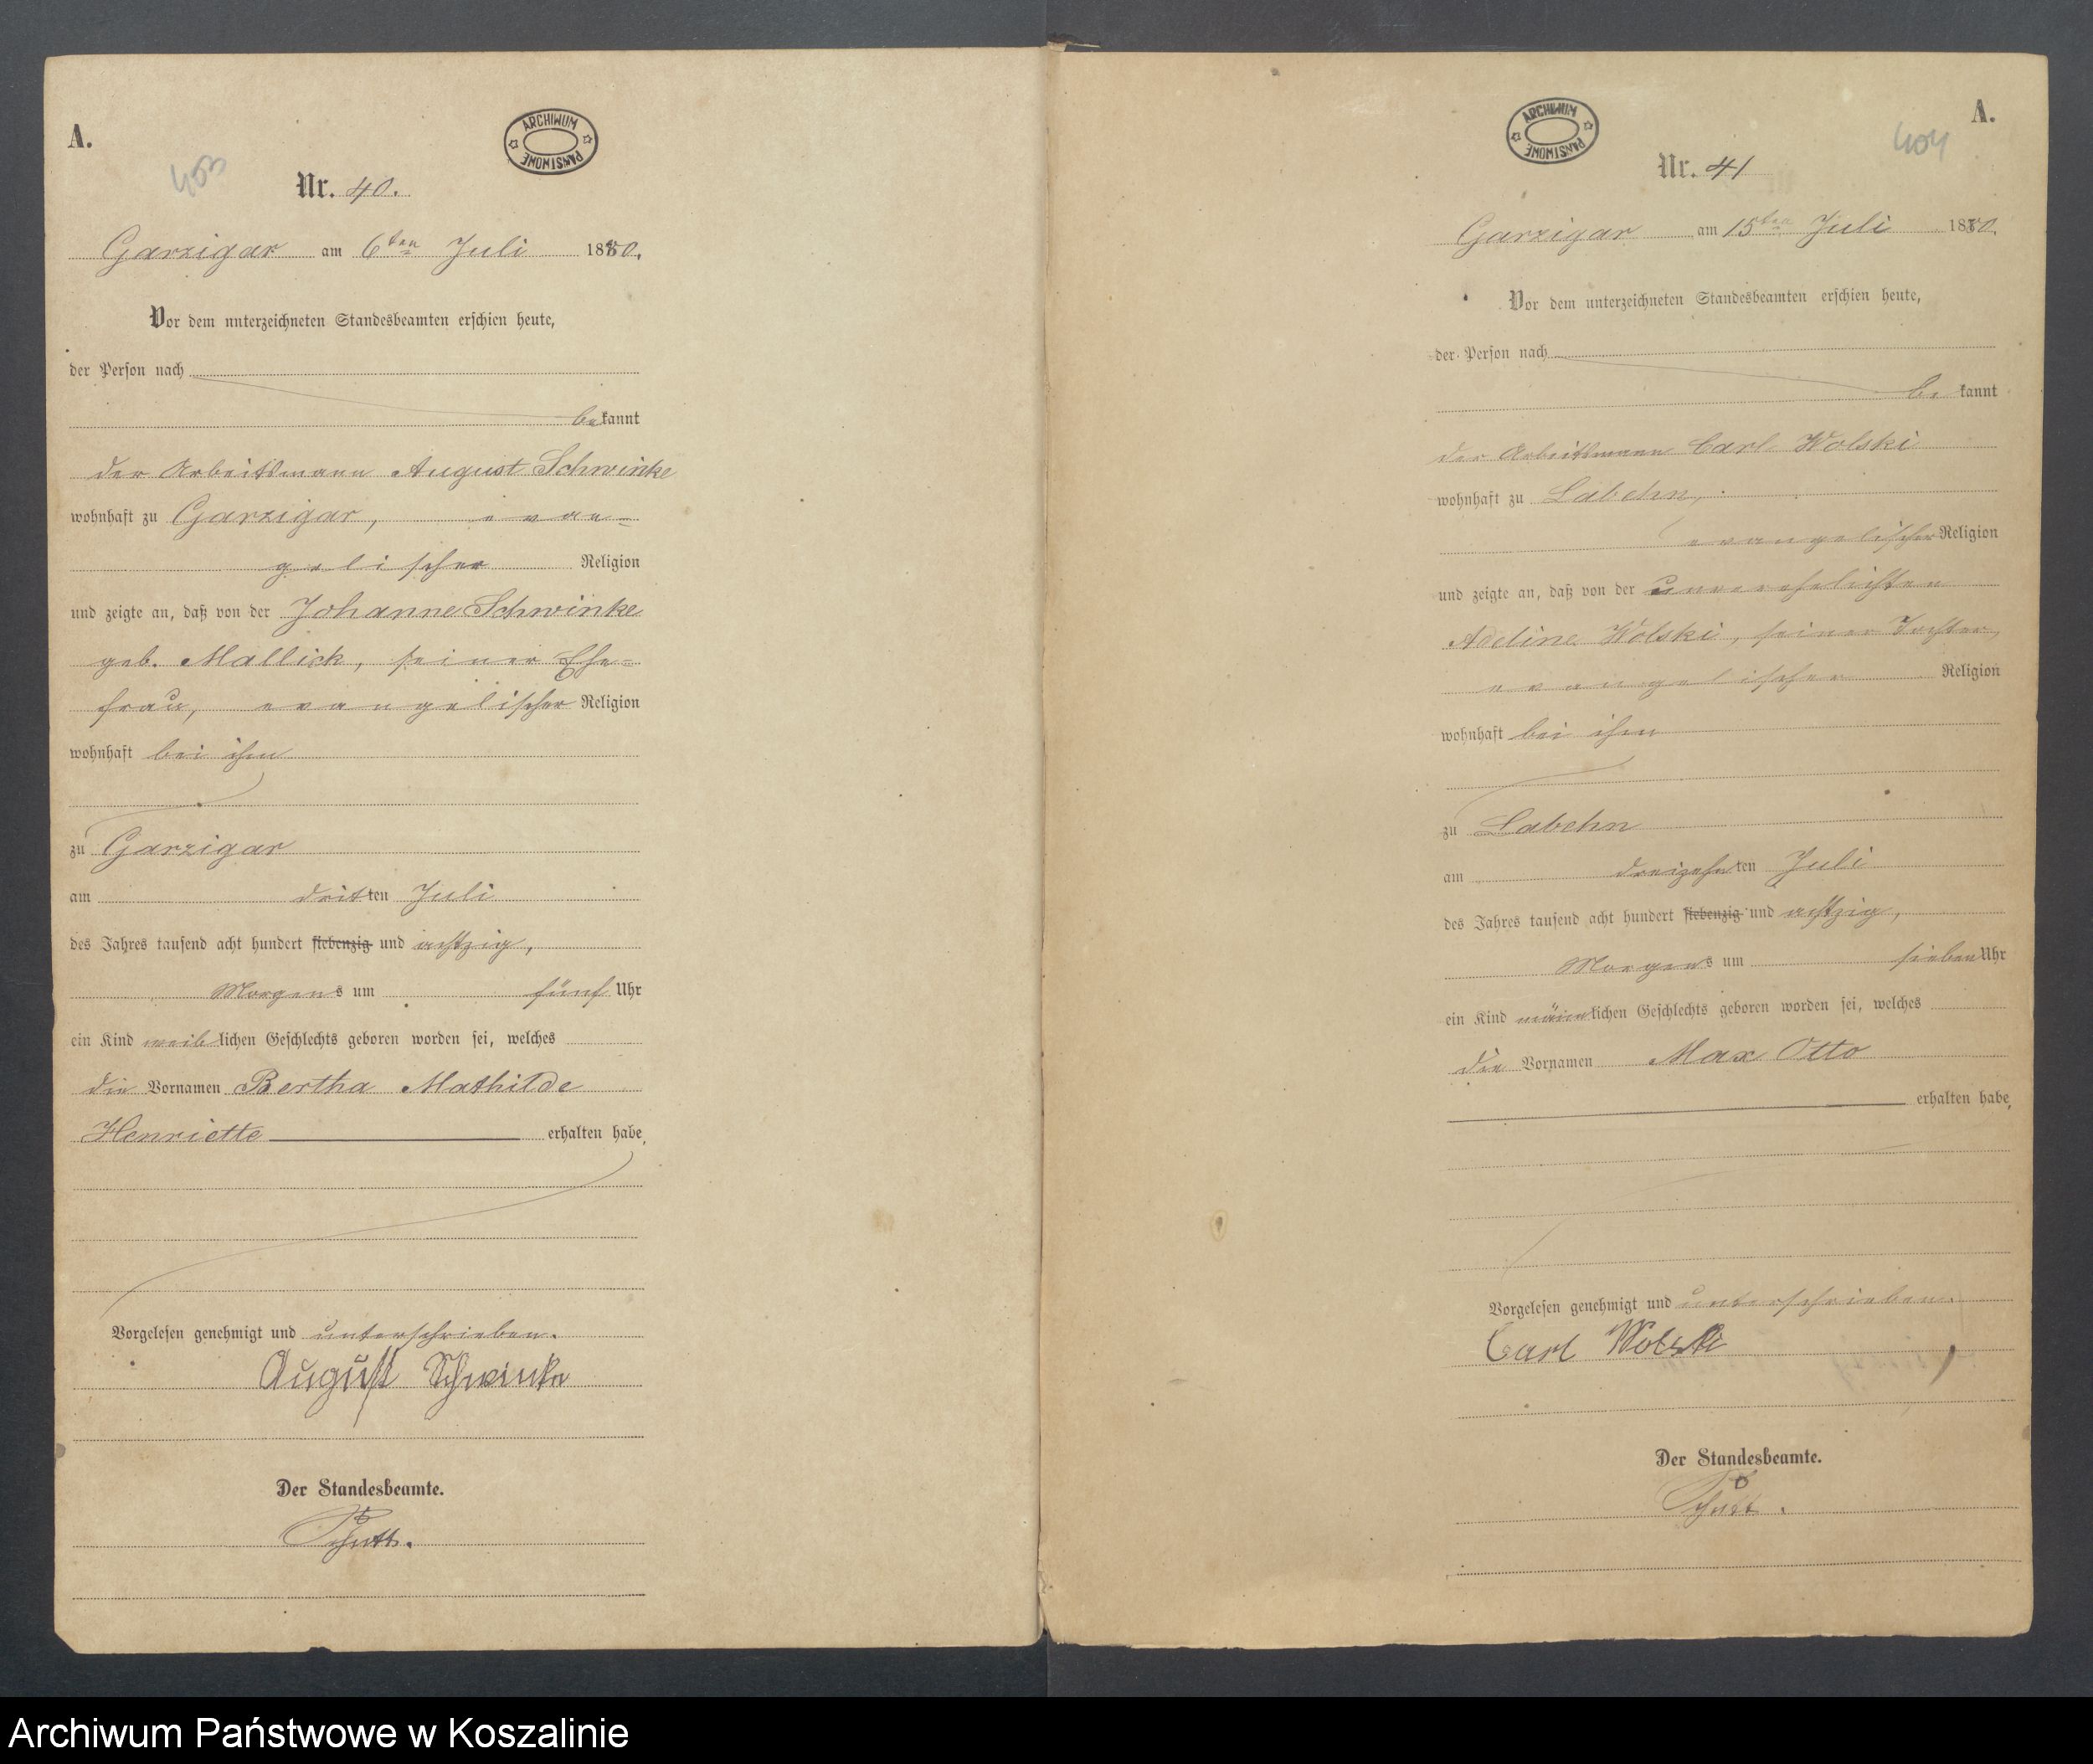 A.
403
ARCHIWUM PAŃSTWOWE
Nr. 40.
Garzigar am 6ten Juli 1880.
Vor dem unterzeichneten Standesbeamten erschien heute,
der Person nach
be kannt
der Arbeitsmann August Schwinke
wohnhaft zu Garzigar, evan-
gelischer Religion
und zeigte an, daß von der Johanne Schwinke
geb. Mallick, seiner Ehe-
frau, evangelischer Religion
wohnhaft bei ihm
zu Garzigar
am dritten Juli
des Jahres tausend acht hundert siebenzig und achtzig,
Morgens um fünf Uhr
ein Kind weiblichen Geschlechts geboren worden sei, welches
die Vornamen Bertha Mathilde
Henriette erhalten habe,
Vorgelesen genehmigt und unterschrieben.
August Schwinke
Der Standesbeamte.
A.
404
ARCHIWUM PAŃSTWOWE
Nr. 41
Garzigar am 15ten Juli 1880.
Vor dem unterzeichneten Standesbeamten erschien heute,
der Person nach
be kannt
der Arbeitsmann Carl Wolski
wohnhaft zu Labehn,
evangelischer Religion
und zeigte an, daß von der unverehelichten
Adeline Wolski, seiner Tochter,
evangelischer Religion
wohnhaft bei ihm
zu Labehn
am dreizehnten Juli
des Jahres tausend acht hundert siebenzig und achtzig,
Morgens um sieben Uhr
ein Kind männlichen Geschlechts geboren worden sei, welches
die Vornamen Max Otto
erhalten habe,
Vorgelesen genehmigt und unterschrieben.
Carl Wolski
Der Standesbeamte.
Archiwum Państwowe w Koszalinie